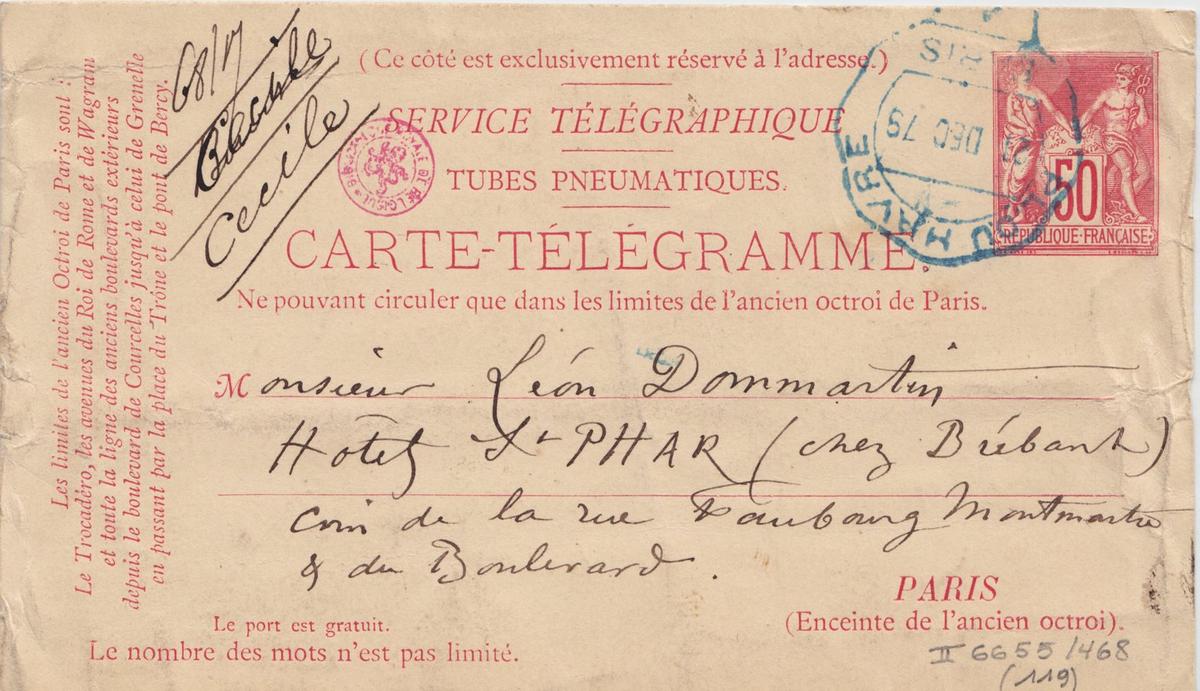 68/17
Cecile
(Ce côté est exclusivement réservé à l'adresse.)
SERVICE TÉLÉGRAPHIQUE
TUBES PNEUMATIQUES.
CARTE-TÉLÉGRAMME.
Ne pouvant circuler que dans les limites de l'ancien octroi de Paris.
PARIS
DEC 79
DU HAVRE
50
REPUBLIQUE FRANÇAISE
Monsieur Léon Dommartin
Hotel St PHAR (chez Brébant)
coin de la rue Faubourg Montmartre
& du Boulevard.
PARIS
(Enceinte de l'ancien octroi).
Le port est gratuit.
Le nombre des mots n'est pas limité.
II 6655/468
(119)
Les limites de l'ancien Octroi de Paris sont :
Le Trocadéro, les avenues du Roi de Rome et de Wagram
et toute la ligne des anciens boulevards extérieurs
depuis le boulevard de Courcelles jusqu'à celui de Grenelle
en passant par la place du Trône et le pont de Bercy.